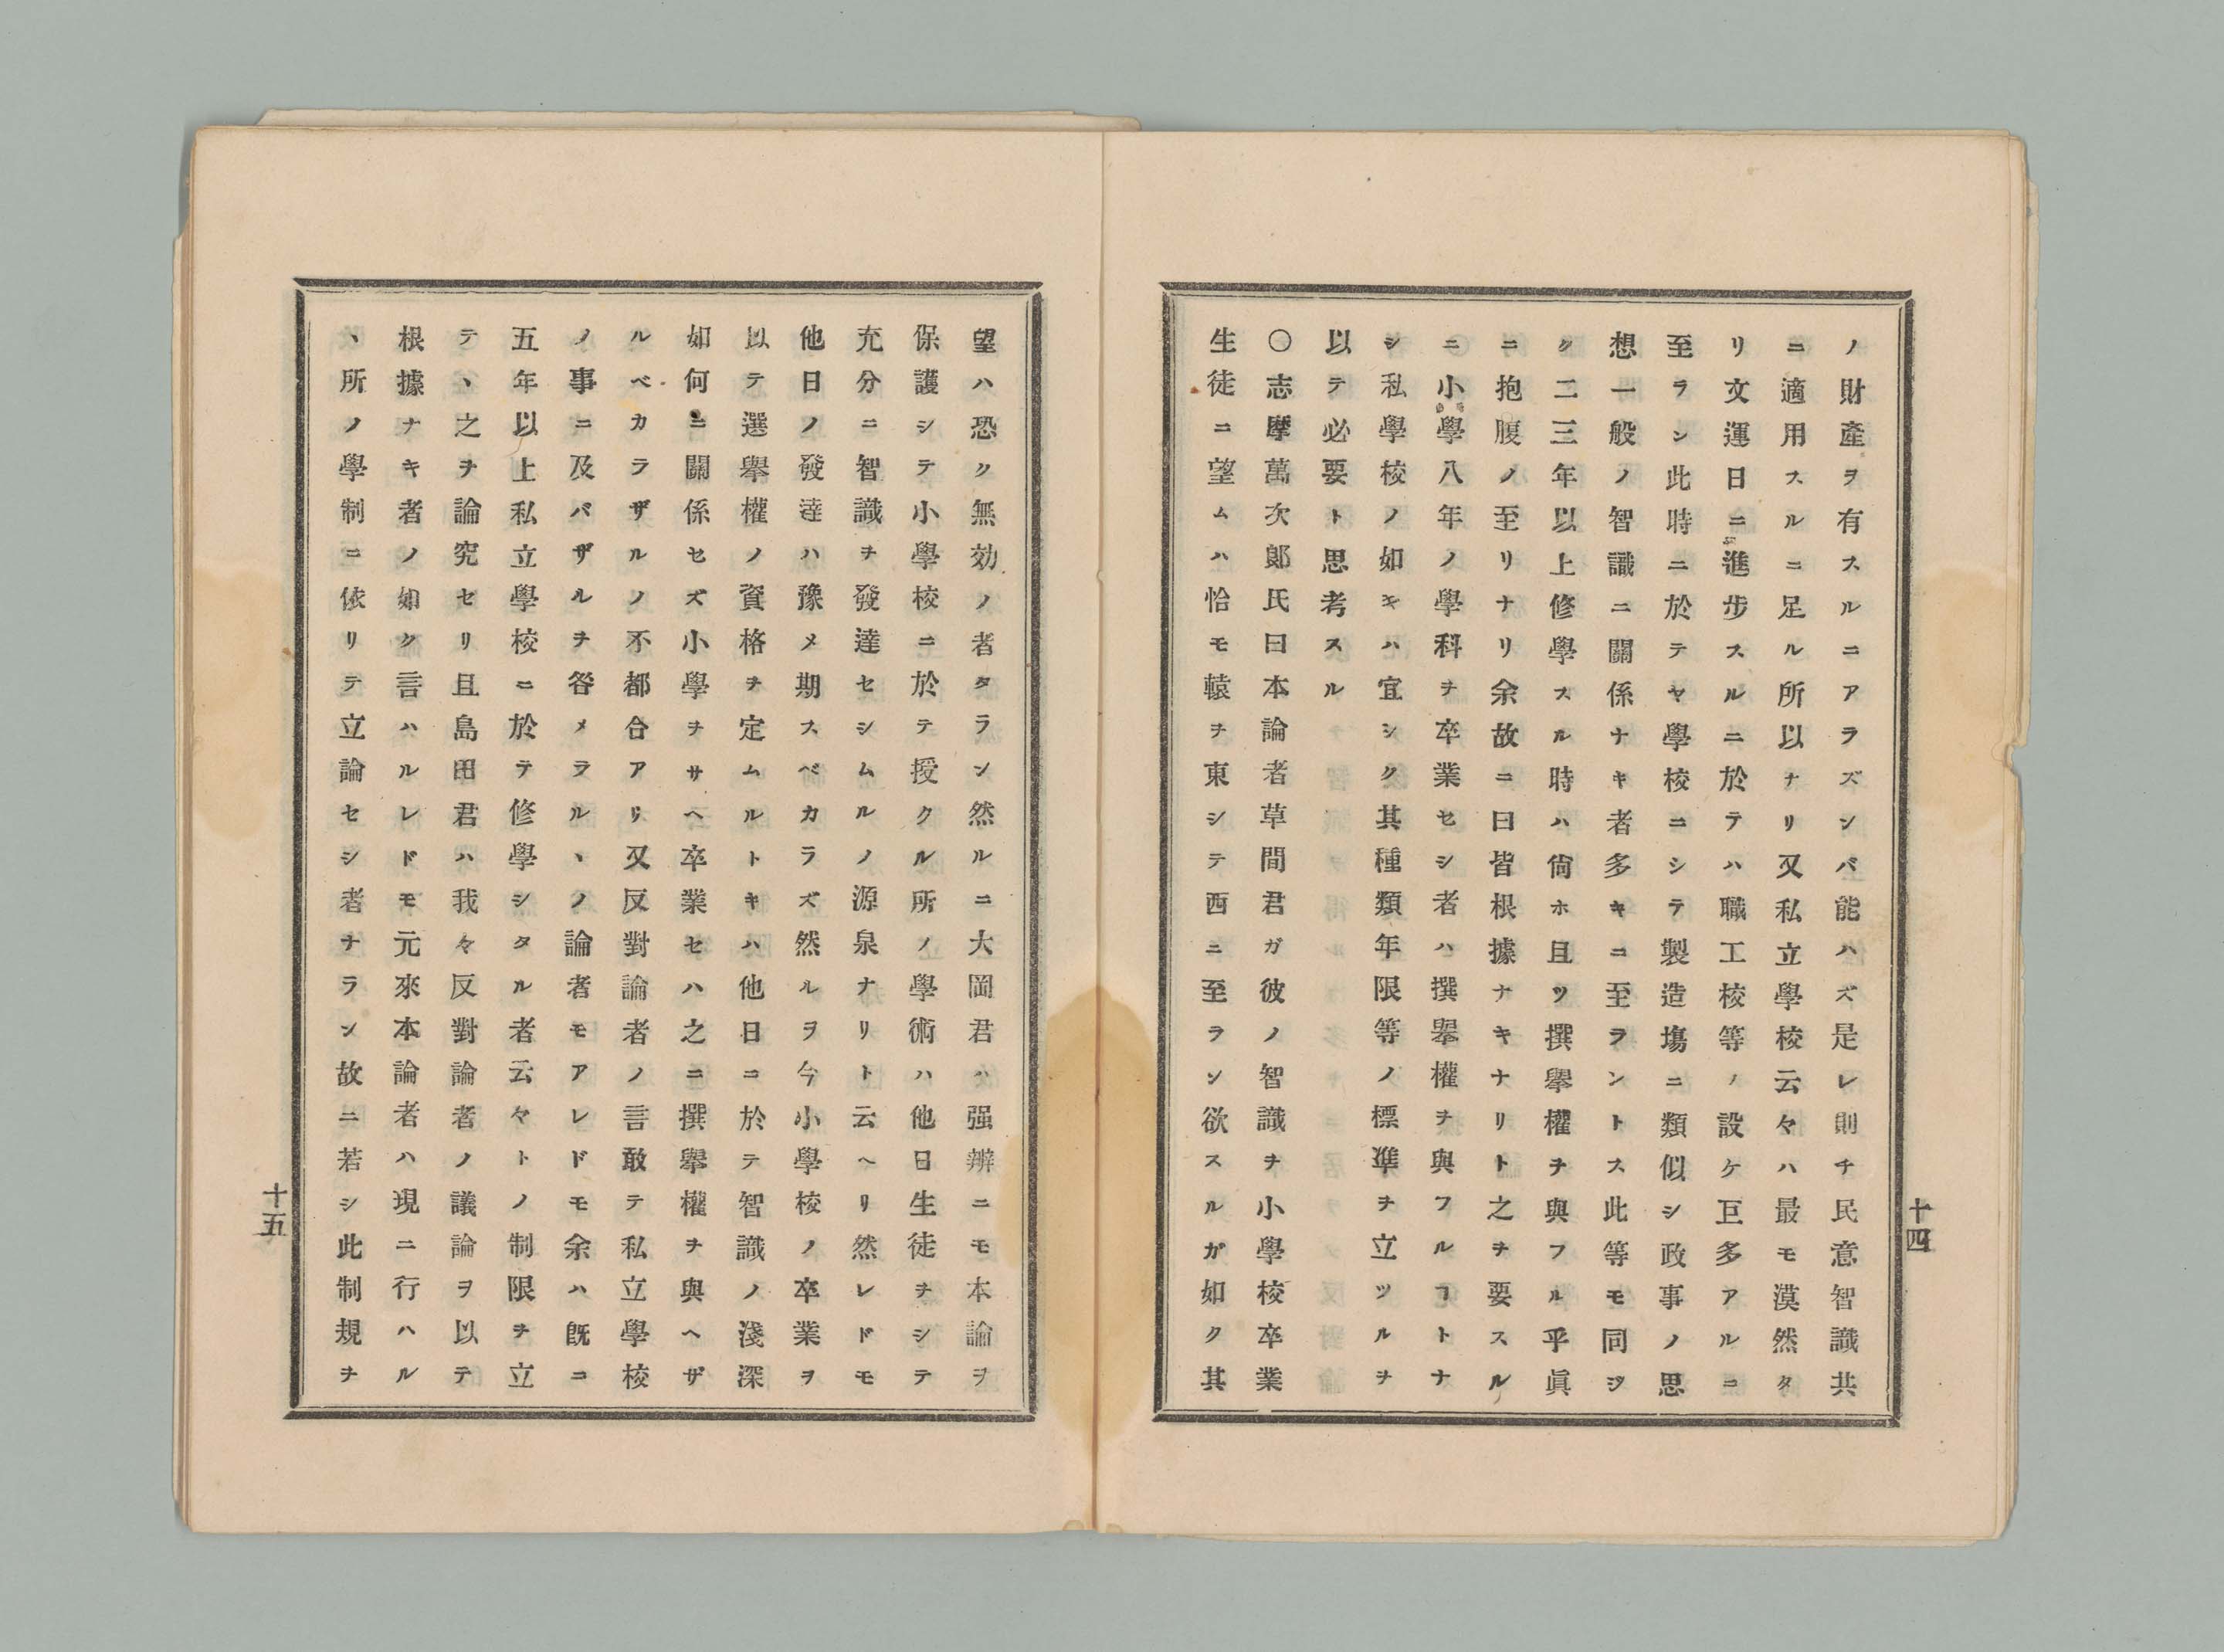 ノ財產ヲ有スルニアラズンバ能ハズ是レ則チ民意智識共
ニ適用スルニ足ル所以ナリ又私立學校云々ハ最モ漠然タ
リ文運日ニ進步スルニ於テハ職工校等ノ設ケ巨多アルニ
至ラシ此時ニ於テヤ學校ニシテ製造塲ニ類似シ政事ノ思
想一般ノ智識ニ關係ナキ者多キコ至ラントス此等モ同ジ
ク二三年以上修學スル時ハ尙ホ且ツ撰擧權チ與フル乎眞
ニ抱腹ノ至リナリ余故ニ曰皆根據ナキナリト之チ要スル
ニ小學八年ノ學科チ卒業セシ者ハ撰擧權チ與フルコトナ
シ私學校ノ如キハ宜シク其種類年限等ノ標準チ立ツルヲ
以テ必要ト思考スル
〇志摩萬次郞氏曰本論者草間君ガ彼ノ智識チ小學校卒業
生徒ニ望ムハ恰モ轅ヲ東シテ西ニ至ラン欲スルガ如ク其
十四
望ハ恐ク無効ノ者タラン然ルニ大岡君ハ强辨ニモ本論ヲ
保護シテ小學校ニ於テ授クル所ノ學術ハ他日生徒チシテ
充分ニ智識チ發達セシムルノ源泉ナリト云ヘリ然レドモ
他日ノ發達ハ豫メ期スベカラズ然ルヲ今小學校ノ卒業ヲ
以テ選擧權ノ資格チ定ムルトキハ他日コ於テ智識ノ淺深
如何ニ關係セズ小學チサヘ卒業セハ之ニ撰擧權チ與ヘザ
ルベカラザルノ不都合アリ又反對論者ノ言敢テ私立學校
ノ事ニ及バザルチ咎メラルヽノ論者モアレドモ余ハ旣コ
五年以上私立學校ニ於テ修學シタル者云々トノ制限チ立
テヽ之チ論究セリ且島田君ハ我々反對論者ノ議論ヲ以テ
根據ナキ者ノ如ク言ハルレドモ元來本論者ハ現ニ行ハル
ヽ所ノ學制ニ依リテ立論セシ者ナラン故ニ若シ此制規チ
十五